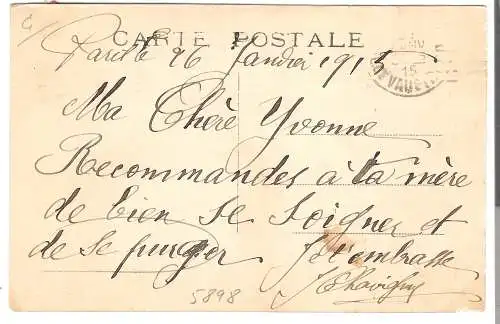 CARTE POSTALE
Paris le 26 Janvier 1915
Ma Chère Yvonne
Recommandes à ta mère
de bien se soigner et
de se purger Je t'embrasse
5898